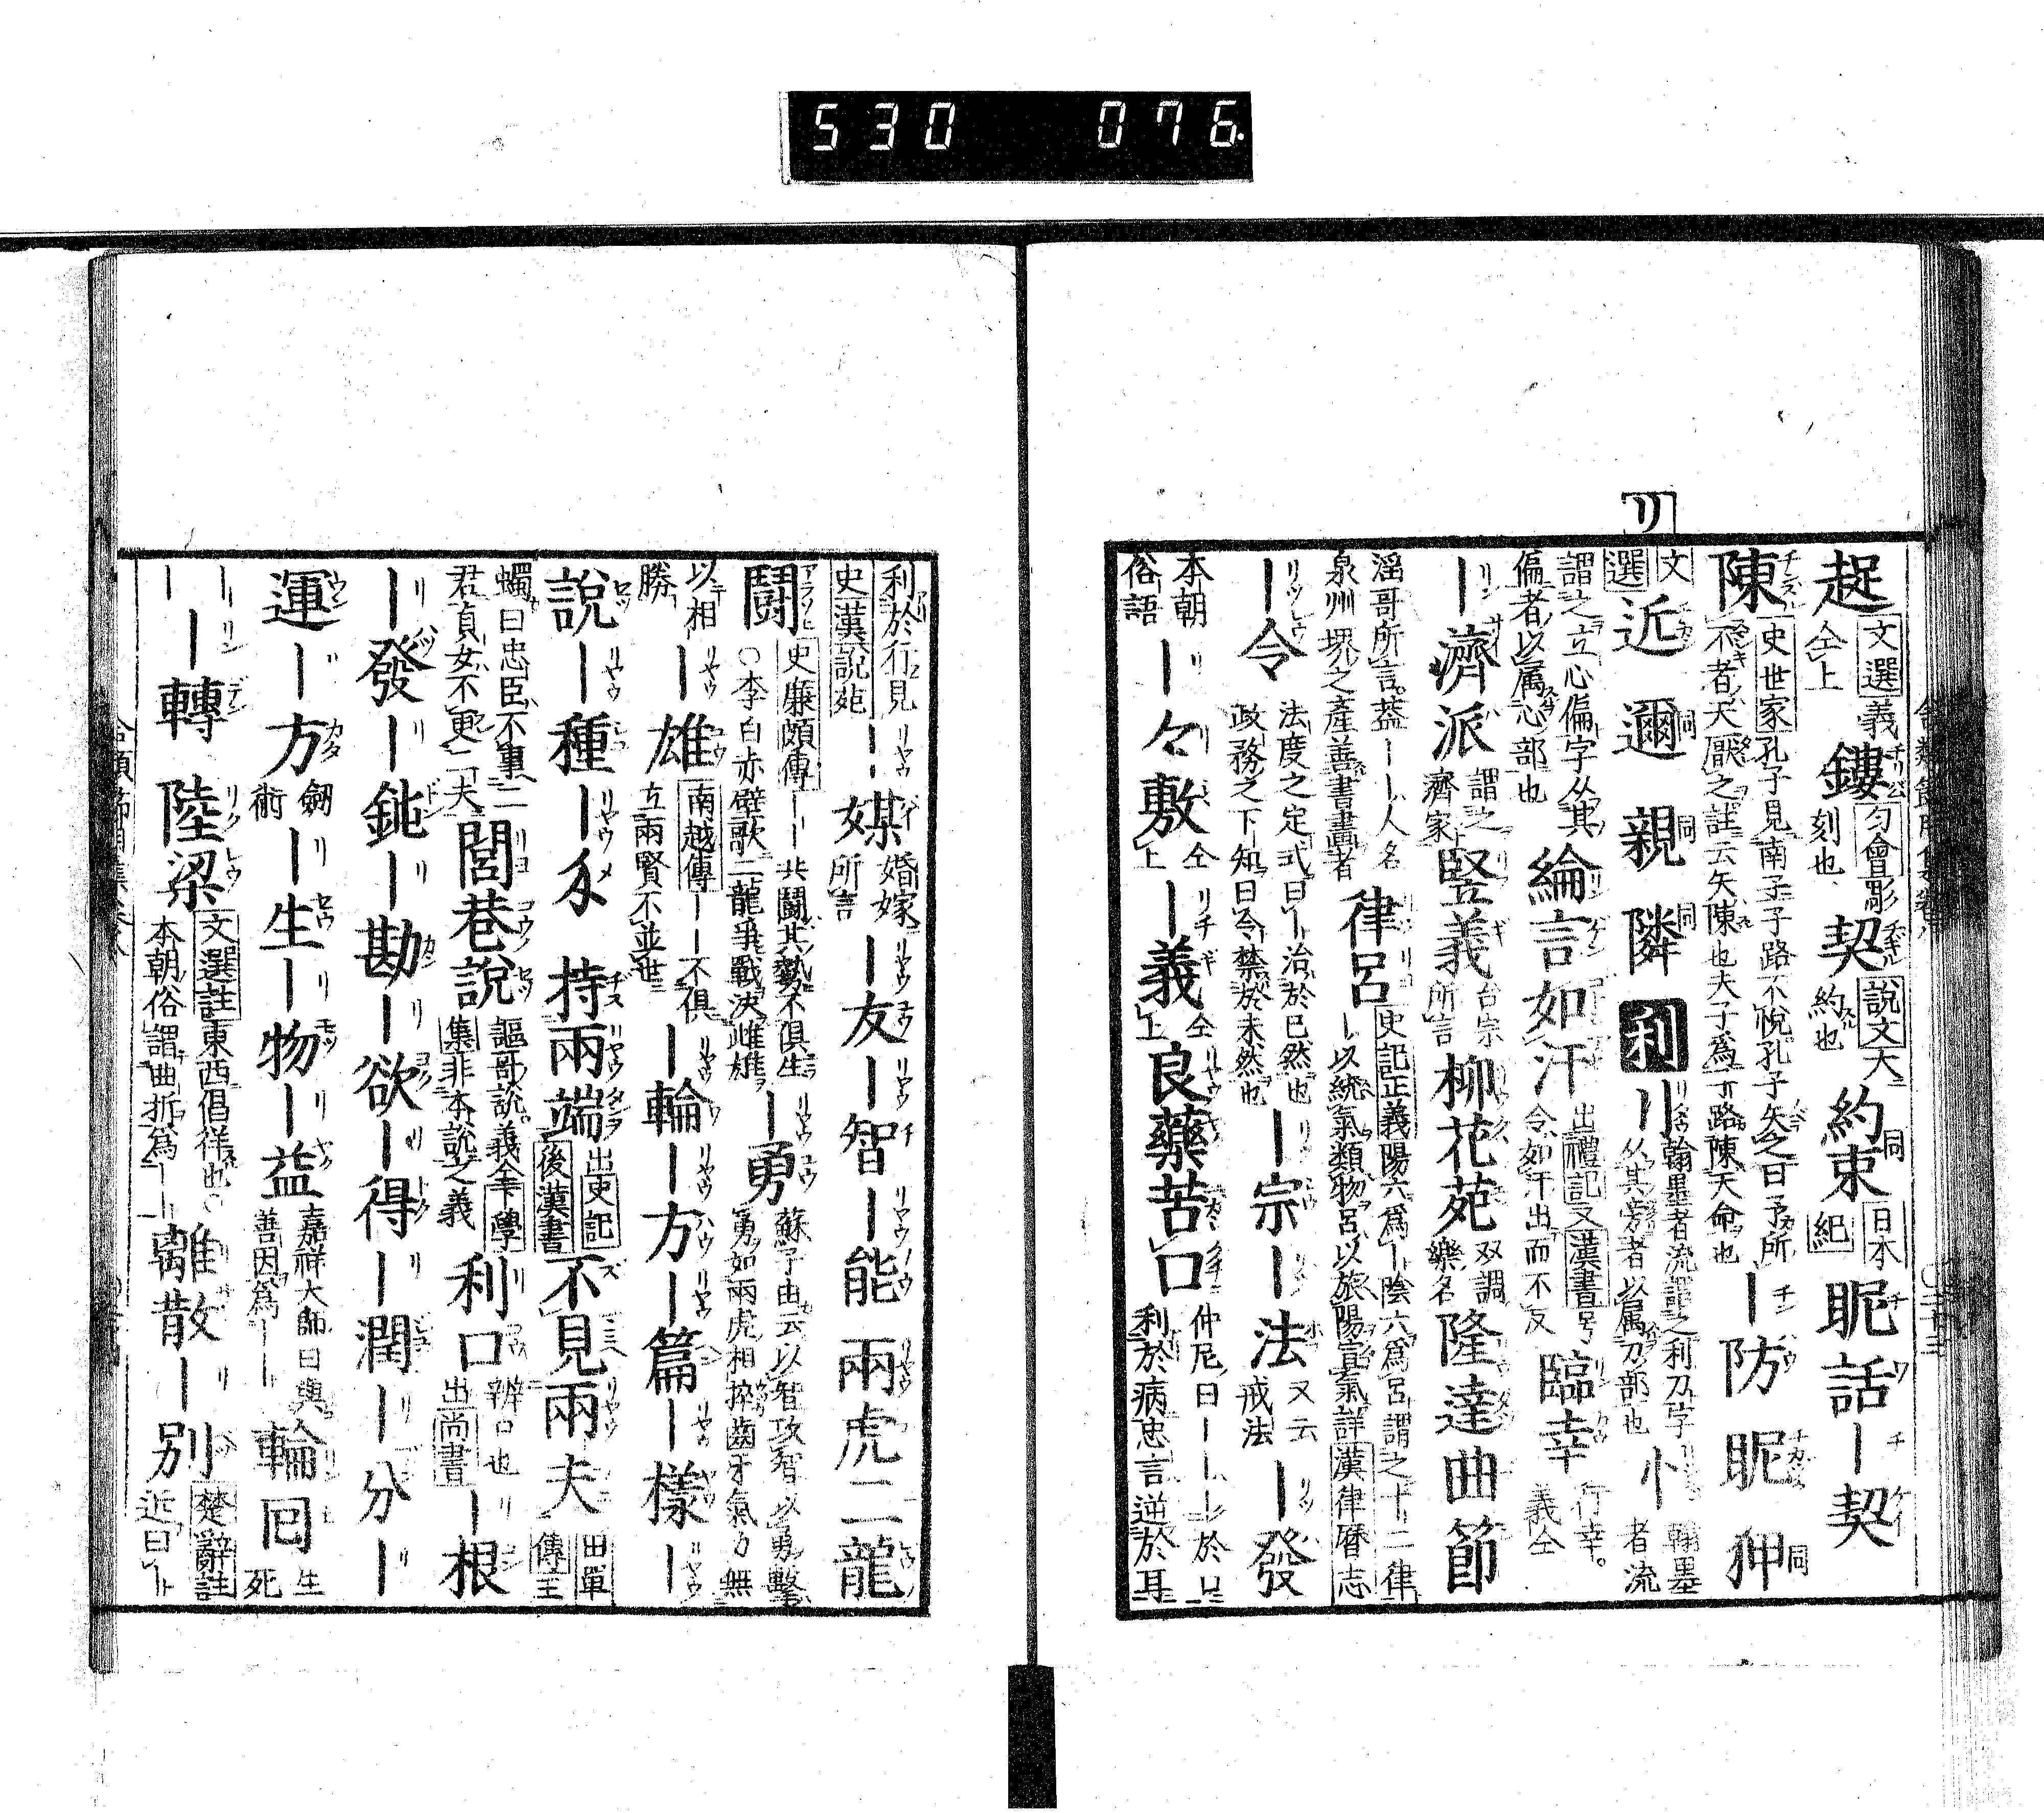 530 076.
リ
趗仝上 文選義 鏤匀會彫刻也 契說文大約也 約束日本紀 眤話｜契
陳史世家孔子見南子子路不悅孔子矢之曰予所不者天厭之註云矢陳也夫子爲子路陳天命也 ｜防 眤 狎
文選 近 邇 親 隣 利 刂翰墨者流謂之利刀字从其旁者以属刀部也 忄翰墨者流
謂之立心偏字从其偏者以属心部也 綸言如汗出禮記又漢書号令如汗出而不反 臨幸行幸。義仝
｜濟派謂之濟家 竪義台宗所言 柳花苑双調樂名 隆達曲節
滛哥所言葢｜｜人名泉州堺之產善書畵者 律呂史記正義陽六爲｜陰六爲呂謂之十二律｜以統氣類物呂以旅陽宣氣詳漢律暦志
｜令法度之定式曰｜治於已然也政務之下知曰令禁於未然也 ｜宗｜法又云戒法 ｜發
本朝俗語 ｜々敷仝上 ｜義仝上 良藥苦口仲尼曰｜｜｜於口利於病忠言逆於耳
利於行見史漢說苑 ｜媒婚嫁所言 ｜友｜智｜能 兩虎二龍
鬪史廉頗傳｜｜共鬪其勢不俱生○李白赤壁歌二龍爭戰決雌雄 ｜勇蘇子由云以智攻智以勇擊勇如兩虎相捽齒牙氣力無
以相勝 ｜雄南越傳｜｜不俱立兩賢不並世 ｜輪｜方｜篇｜樣｜
說｜種｜ 持兩端出史記後漢書 不見兩夫田單傳王
蠋曰忠臣不事二君貞女不更二夫 閭巷說謳哥說。義仝下學集非本說之義 利口辨口也出尚書 ｜根
｜發｜鈍｜勘｜欲｜得｜潤｜分｜
運｜方劔術 ｜生｜物｜益嘉祥大師曰與善因爲｜｜ 輪回生死
｜｜｜轉 陸梁文選註東西倡祥也○本朝俗謂曲折爲｜｜ 離散｜別楚辭註近曰｜